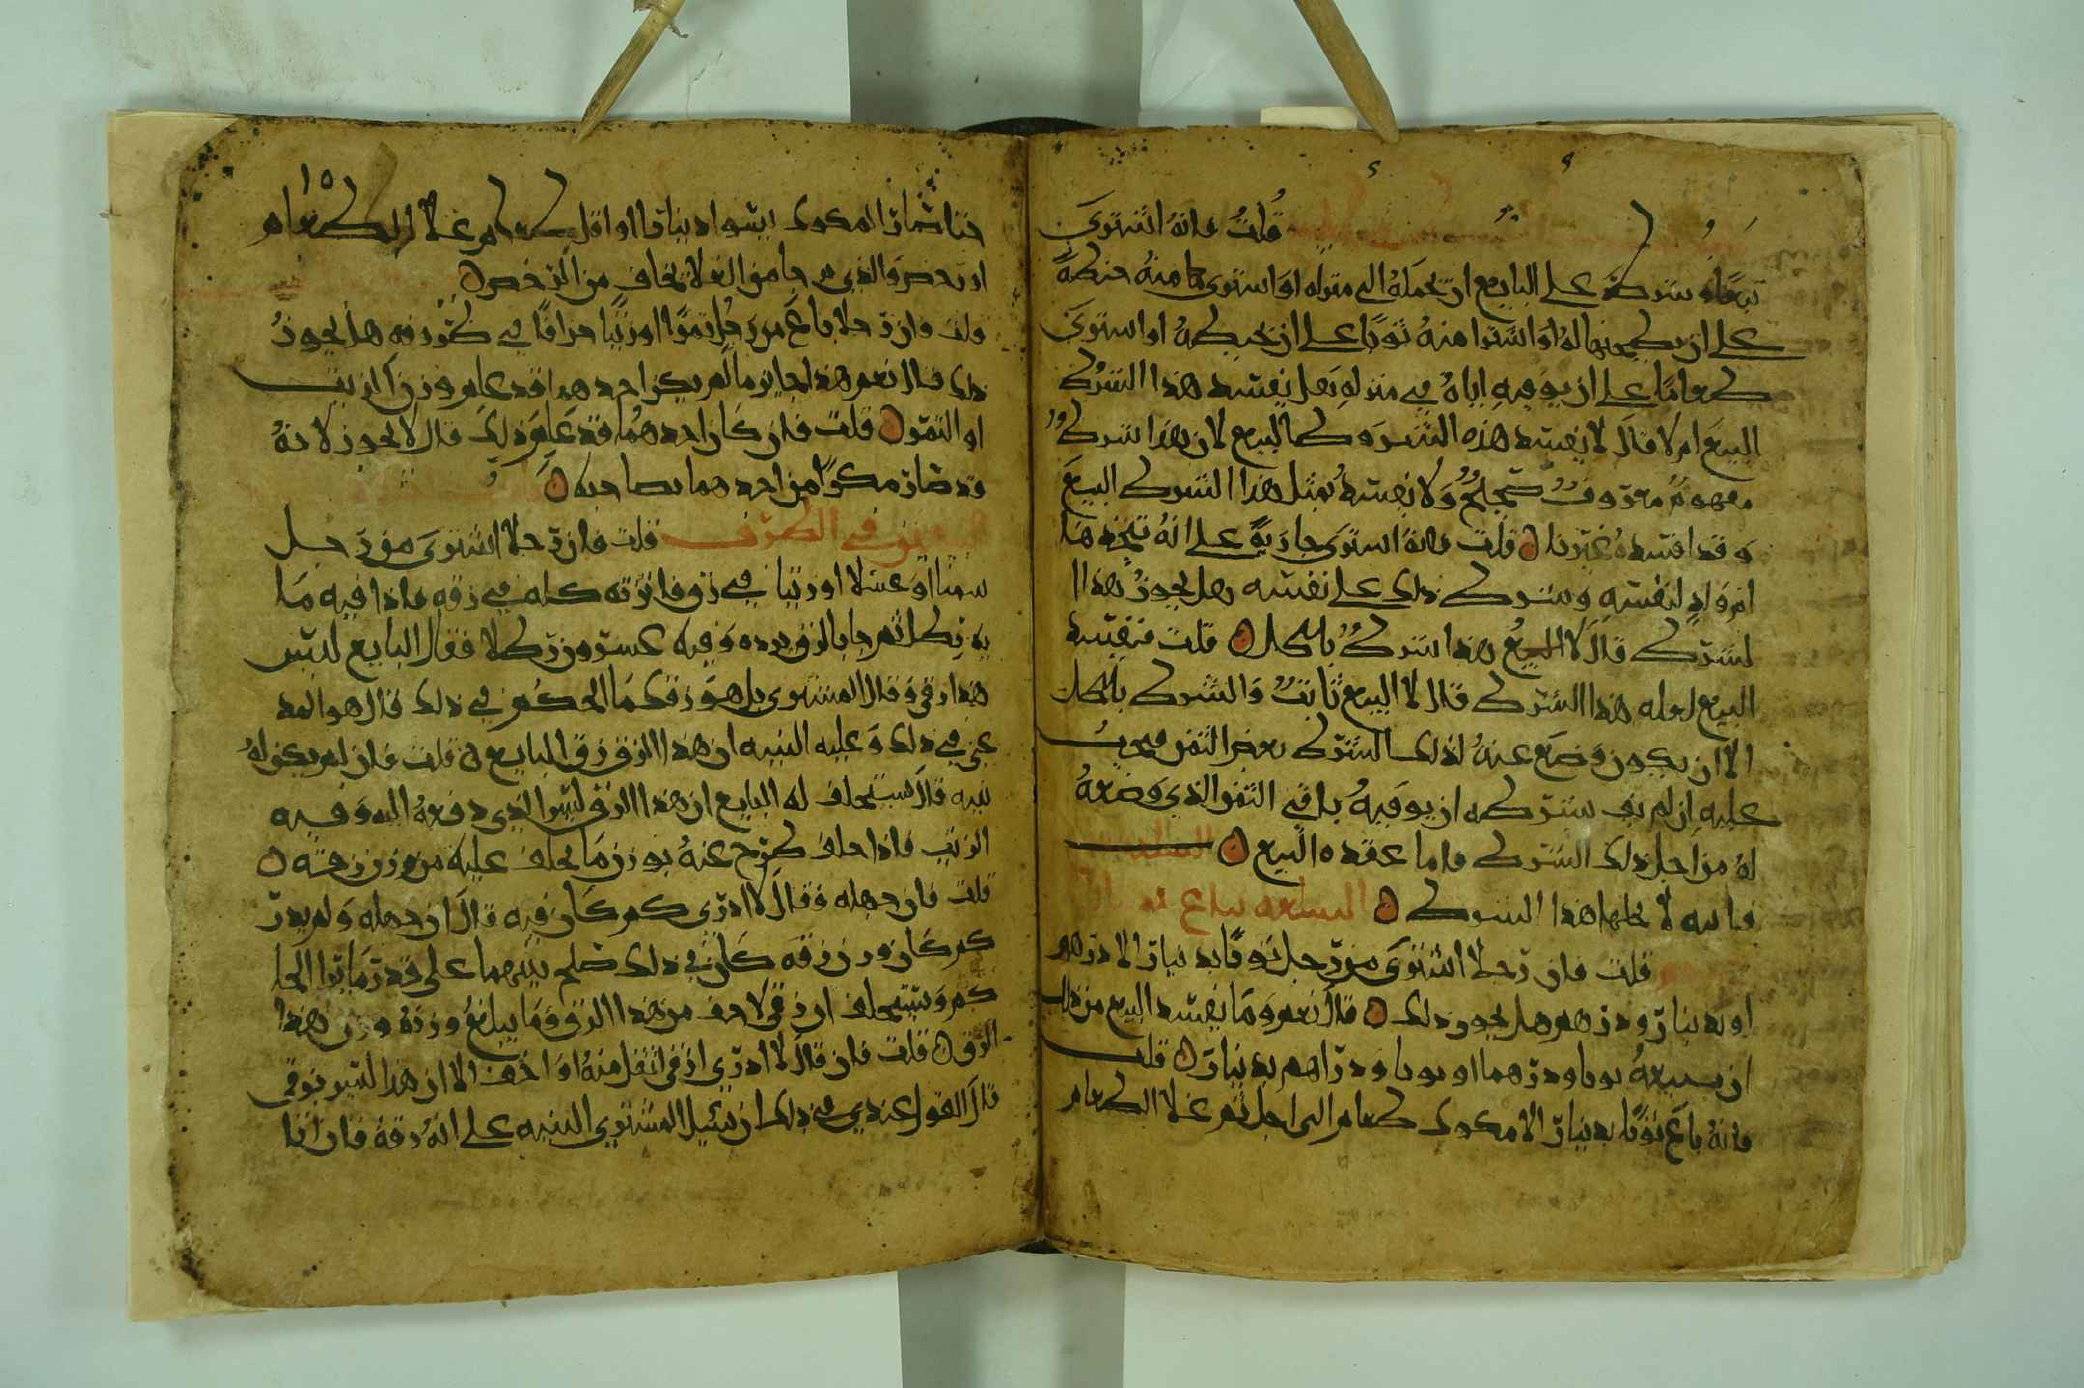 قلت فانه اشترى
شيئا وشرط على البايع ان يحمله الى منزله او اشترى منه حنطة
على ان يطحنها له او اشترا منه ثوبا على ان يخيطه او اشترى
طعاما على ان يوفيه اياه في منزله هل يفسد هذا الشرط
البيع ام لا قال لا يفسد هذه الشروط البيع لان هذا شرط
مفهوم معروف صحيح ولا يفسد بمثل هذا الشرط البيع
وقد افسده غيرنا قلت فانه اشترى جارية على انه يتخذها
ام ولد لنفسه وشرط ذلك على نفسه هل يجوز هذا ا
لشرط قال لا البيع هذا شرط باطل قلت فيفسد
البيع لعله هذا الشرط قال لا البيع ثابت والشرط باطل
الا ان يكون وضع عنه لذلك الشرط بعض الثمن فيجب
عليه ان لم يف بشرطه ان يوفيه باقي الثمن الذي وضعه
له من اجل ذلك الشرط فاما عقده البيع
فانه لا يحلها هذا الشرط السلعه تباع بدينار
قلت فان رجلا اشترى من رجل ثوبا بدينار الا درهم
او بدينار ودرهم هل يجوز ذلك قال نعم وما يفسد البيع من ذلك
ان يبيعه ثوبا ودرهما او ثوبا ودراهم بدينار قلت
فانه باع ثوبا بدينار الا مكوك طعام الى اجل ثم غلا الطعام
١٥
حتا صار المكوك يسوا دينارا او اقل او لم غلا الطعام
او رخص والذي جا من الغلا يخاف من الرخص
قلت فان رجلا باع من رجل تمرا او زيتا جزافا في ظروفه هل يجوز
ذلك قال نعم هذا جايز ما لم يكن احدهما قد علم وزن الزيت
او التمر قلت فان كان احدهما قد علم ذلك قال لا يجوز لانه
قد صار مكرا من احدهما بصاحبه
في الظرف قلت فان رجلا اشترى من رجل
سمنا او عسلا او زيتا في زق فاتزنه كله في زقه فاذا فيه ما
يه رطل ثم جا بالزق يرده وفيه عشرون رطلا فقال البايع ليس
هذا زقي وقال المشترى بل هو زقك ما الحكم في ذلك قال هو المد
عي في ذلك وعليه البينه ان هذا الزق زق البايع قلت فان لم يكن له
بينه قال يستحلف له البايع ان هذا الزق ليس الذي دفعه اليه وفيه
الزيت فاذا حلف طرح عنه بوزن ما يحلف عليه من وزن زقه
قلت فان جهله فقال لا ادري كم كان فيه قال ان جهله ولم يدر
كم كان وزن زقه كان في ذلك صلح بينهما على قدر ما يرا الحا
كم ويستحلف ان زقي لاخف من هذا الزق وما يبلغ وزنه وزن هذا
الزق قلت فان قال لا ادري ازقي اثقل منه او اخف الا ان هذا ليس زقي
قال القول عندي في ذلك ان يسئل المشتري البينه على انه زقه فان اتا